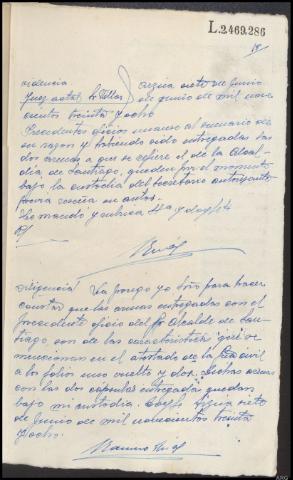 L.2469.286
videncia
Juez actal Sr Villar siete de Junio
de junio de mil nove
cientos treinta y ocho
Precedentes oficios unanse al sumario de
su razon y habiendo sido entregadas las
dos armas a que se refiere el de la Alcal-
día de Santiago, queden por el momento
bajo la custodia del Secretario autorizante
para en autos.
Lo mando y rubrica S.Sª y doy fe
diligencia La pongo yo Srio para hacer
constar que las armas entregadas con el
precedente oficio del Sr Alcalde de San-
tiago, son de las características que se
mencionan en el atestado de la Gª civil
a los folios uno vuelto y dos. Dichas armas
con las dos capsulas entregadas quedan
bajo mi custodia. Doy fe. siete
de Junio de mil novecientos treinta
y ocho.